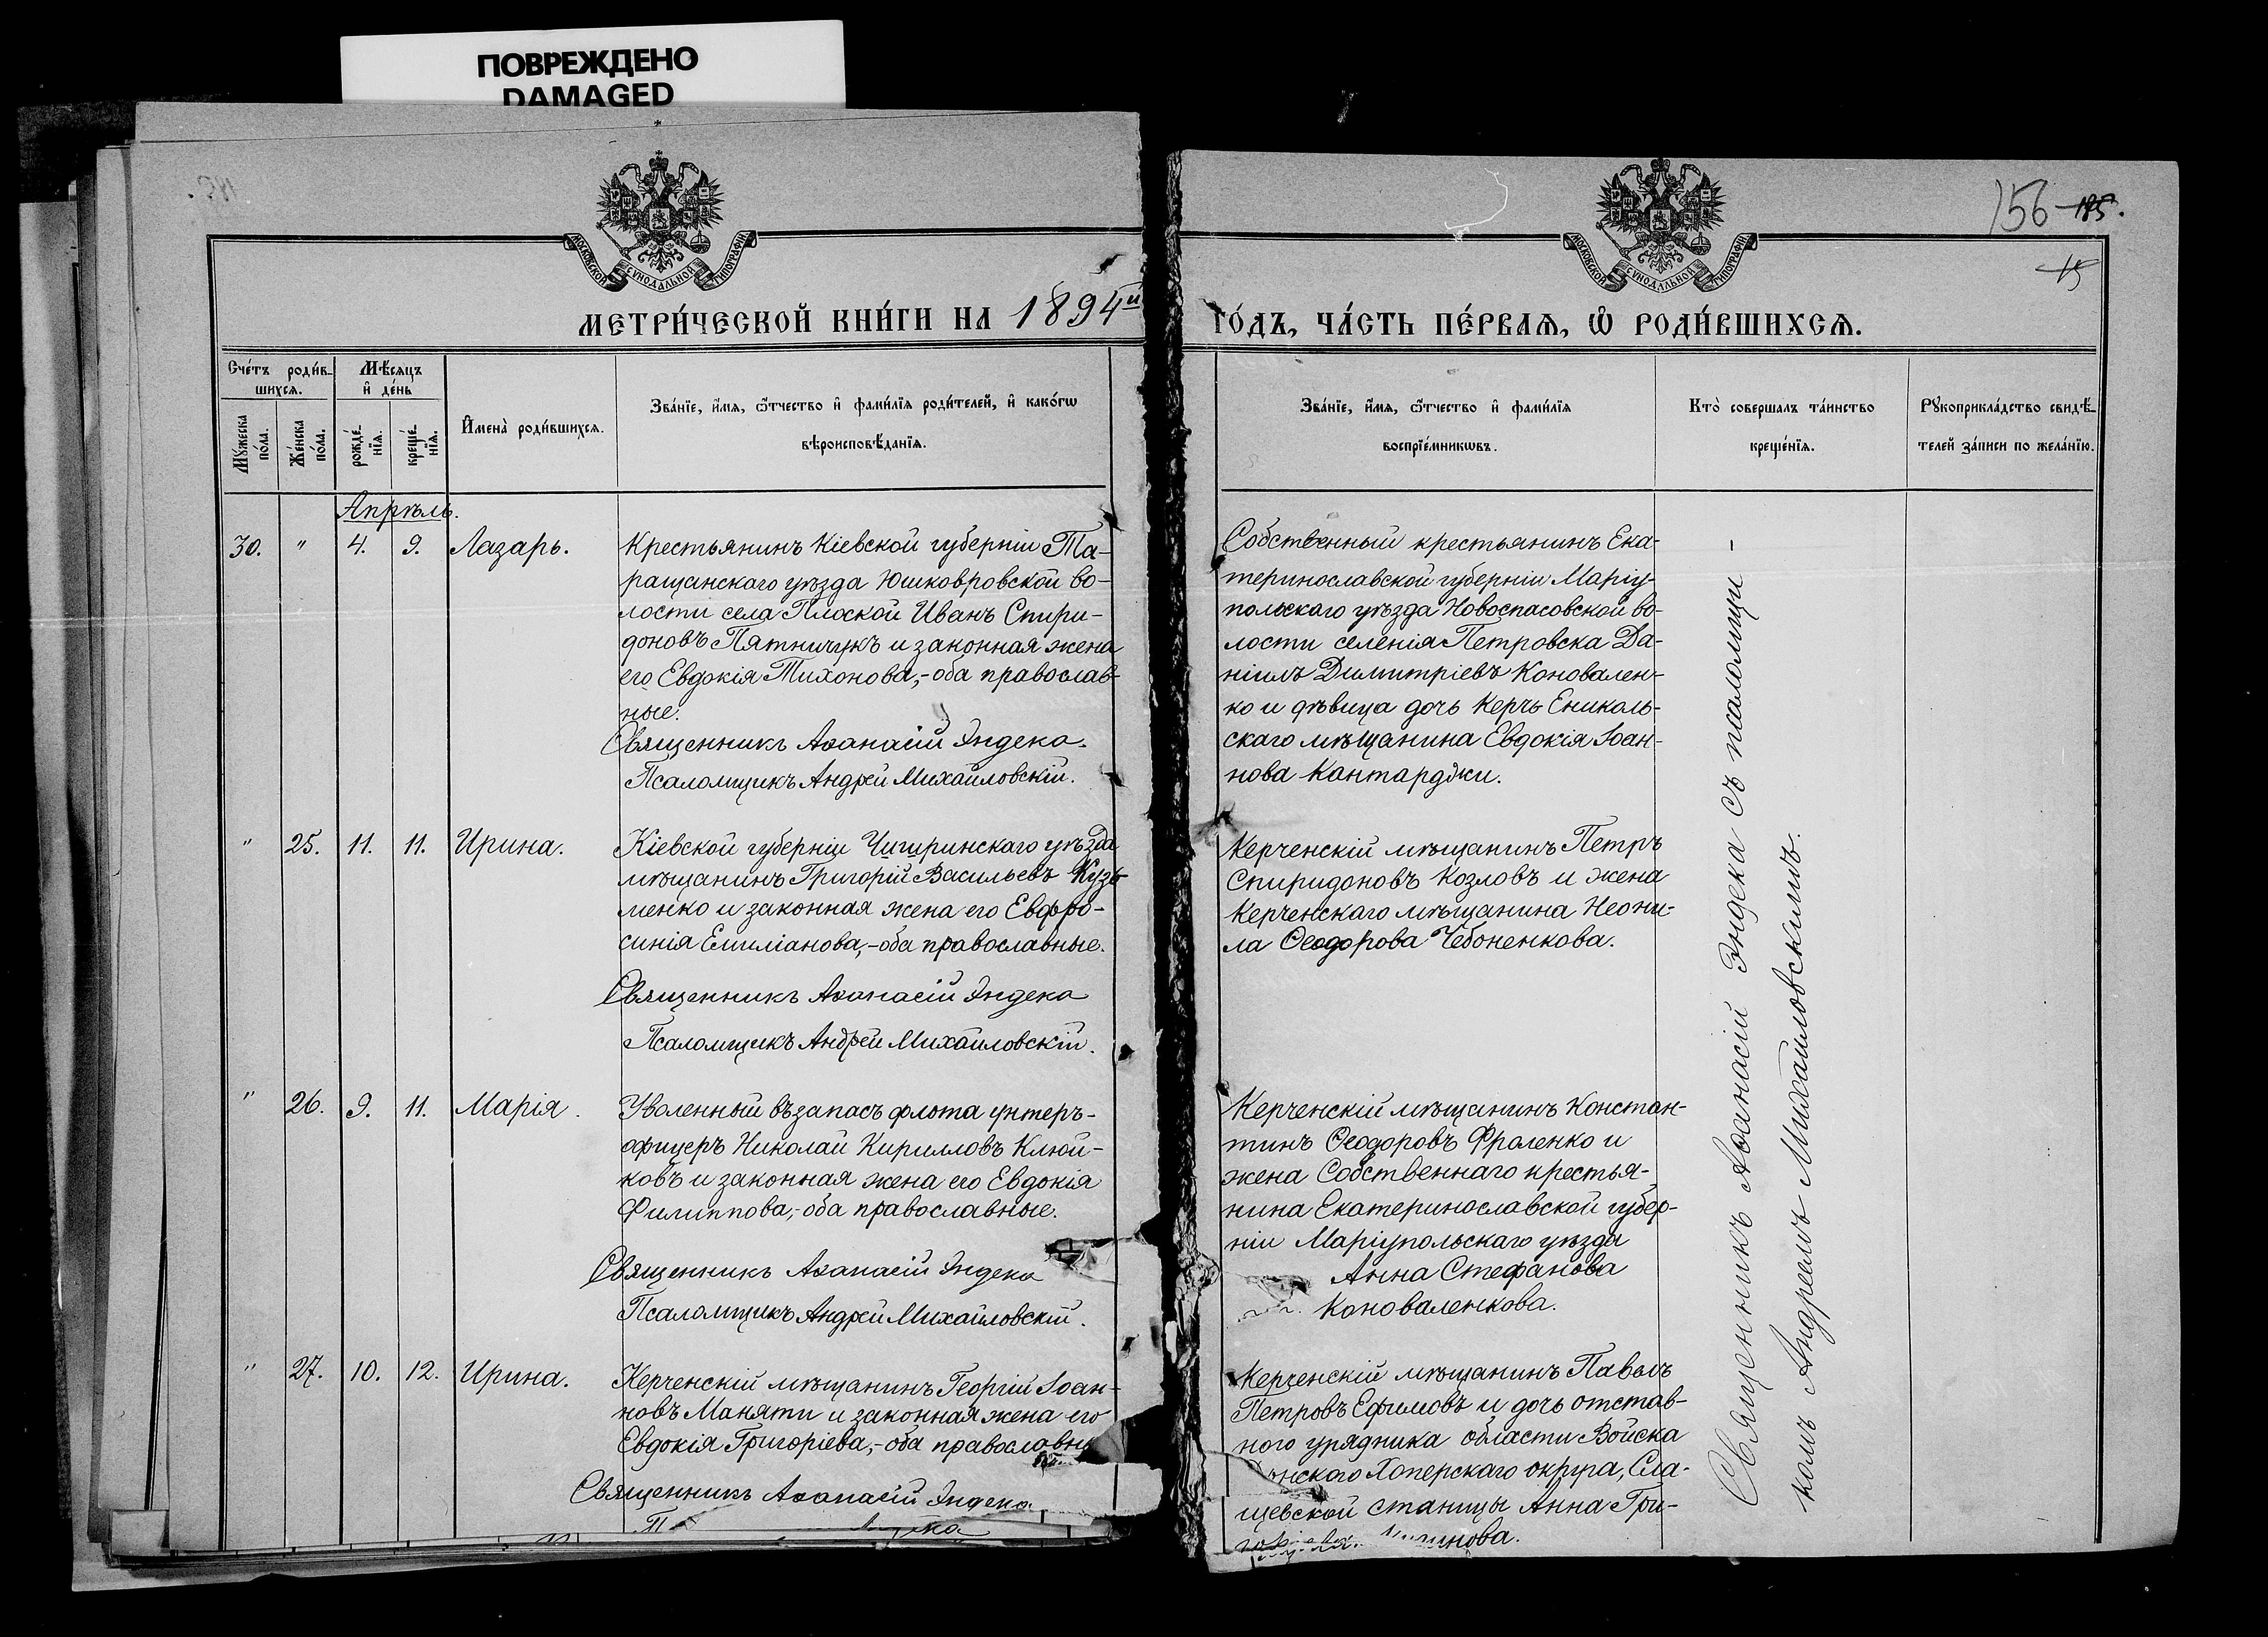 ПОВРЕЖДЕНО
DAMAGED
МОСКОВСКОЙ СѴНОДАЛЬНОЙ ТИПОГРАФІИ
МЕТРИ́ЧЕСКОЙ КНИ́ГИ НА 1894й
Сче́тъ роди́в-
шихся.
Мѣ́сяцъ
и҆ де́нь
Мꙋ́жеска
по́ла.
Же́нска
по́ла.
рожде́-
нїя.
креще́-
нїя.
И҆мена̀ роди́вшихся.
Зва́нїе, и҆́мя, ѻ҆́тчество и҆ фами́лїя роди́телей, и҆ како́гѡ
вѣроисповѣ́данїя.
Апрѣль.
30. " 4. 9. Лазарь.
Крестьянинъ Кіевской губерніи Та-
ращанскаго уѣзда Юшковровской во-
лости села Плоской Иванъ Спири-
доновъ Пятничукъ и законная жена
его Евдокія Тихонова,-оба православ-
ные.
Священникъ Аѳанасій Эндека.
Псаломщикъ Андрей Михайловскій.
" 25. 11. 11. Ирина.
Кіевской губерніи Чигиринскаго уѣзда
мѣщанинъ Григорій Васильевъ Кузь-
менко и законная жена его Евфро-
синія Емиліанова,-оба православные.
Священникъ Аѳанасій Эндека
Псаломщикъ Андрей Михайловскій.
" 26. 9. 11. Марія.
Уволенный въ запасъ флота унтеръ-
офицеръ Николай Кирилловъ Клюй-
ковъ и законная жена его Евдокія
Филиппова,-оба православные.
Священникъ Аѳанасій Эндека
Псаломщикъ Андрей Михайловскій.
" 27. 10. 12. Ирина.
Керченскій мѣщанинъ Георгій Іоан-
новъ Маняти и законная жена его
Евдокія Григоріева,-оба православны
Священникъ Аѳанасій Эндека.
156 185.
15
МОСКОВСКОЙ СѴНОДАЛЬНОЙ ТИПОГРАФІИ
ГО́ДЪ, ЧА́СТЬ ПЕ́РВАЯ, Ѡ҆ РОДИ́ВШИХСЯ.
Зва́нїе, и҆́мя, ѻ҆́тчество и҆ фами́лїя
воспрїе́мникѡвъ.
Кто̀ соверша́лъ та́инство
креще́нїя.
Рꙋкоприкла́дство свидѣ́-
телей за́писи по жела́нїю.
Собственный крестьянинъ Ека-
теринославской губерніи Маріу-
польскаго уѣзда Новоспасовской во-
лости селенія Петровска Да-
ніилъ Димитріевъ Коновален-
ко и дѣвица дочь Керчь Ениколь-
скаго мѣщанина Евдокія Іоан-
нова Кантарджи.
Керченскій мѣщанинъ Петръ
Спиридоновъ Козловъ и жена
Керченскаго мѣщанина Неони-
ла Ѳеодорова Чебоненкова.
Керченскій мѣщанинъ Констан-
тинъ Ѳеодоровъ Фроленко и
жена Собственнаго крестья-
нина Екатеринославской губер-
ніи Маріупольскаго уѣзда
Анна Стефанова
Коноваленкова.
Керченскій мѣщанинъ Павелъ
Петровъ Ефимовъ и дочь отстав-
ного урядника области Войска
Донскаго Хоперскаго округа, Сла-
щевской станицы Анна Гри-
Священникъ Аѳанасій Эндека съ псаломщи-
комъ Андреемъ Михайловскимъ.